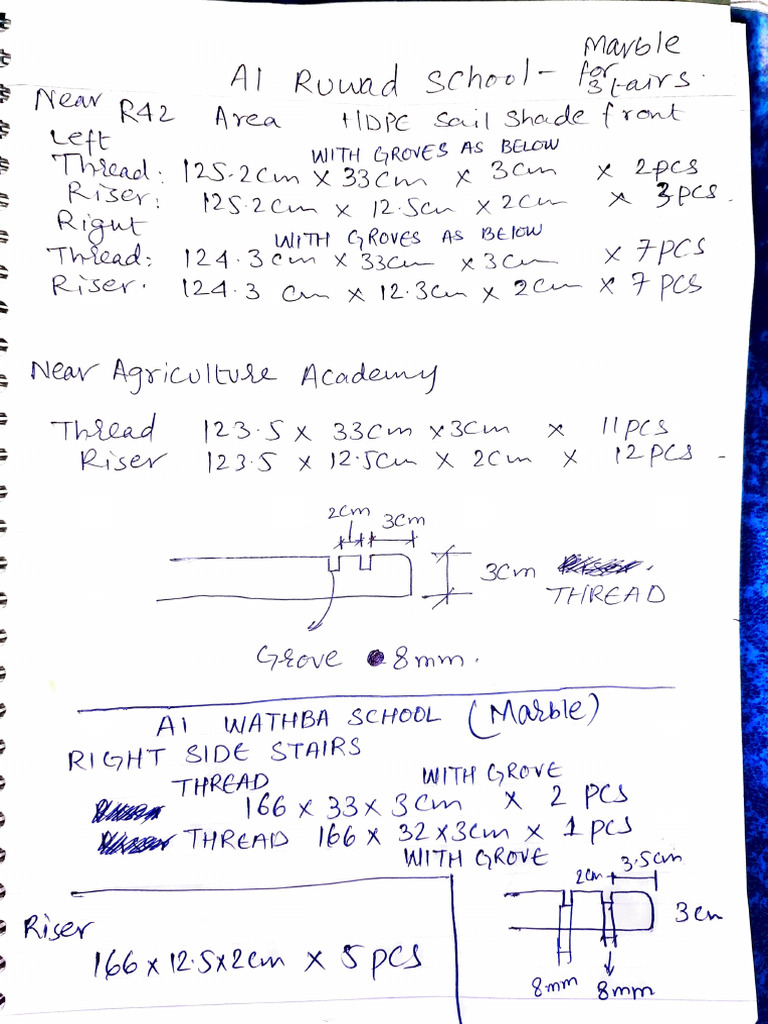 Al Ruwad School - Marble
for
Stairs.
Near R42 Area HDPE Sail Shade front
Left
WITH GROVES AS BELOW
Thread: 125.2cm x 33cm x 3cm x 2pcs
Riser: 125.2cm x 12.5cm x 2cm x 3pcs.
Right
WITH GROVES AS BELOW
Thread: 124.3cm x 33cm x 3cm x 7pcs
Riser. 124.3 cm x 12.3cm x 2cm x 7 pcs
Near Agriculture Academy
Thread 123.5 x 33cm x 3cm x 11pcs
Riser 123.5 x 12.5cm x 2cm x 12pcs -
2cm 3cm
3cm
THREAD
Grove 8mm.
Al WATHBA SCHOOL (Marble)
RIGHT SIDE STAIRS
THREAD WITH GROVE
166 x 33 x 3cm x 2 pcs
THREAD 166 x 32 x 3cm x 1 pcs
WITH GROVE
2cm 3.5cm
3cm
8mm 8mm
Riser
166 x 12.5 x 2cm x 5 pcs